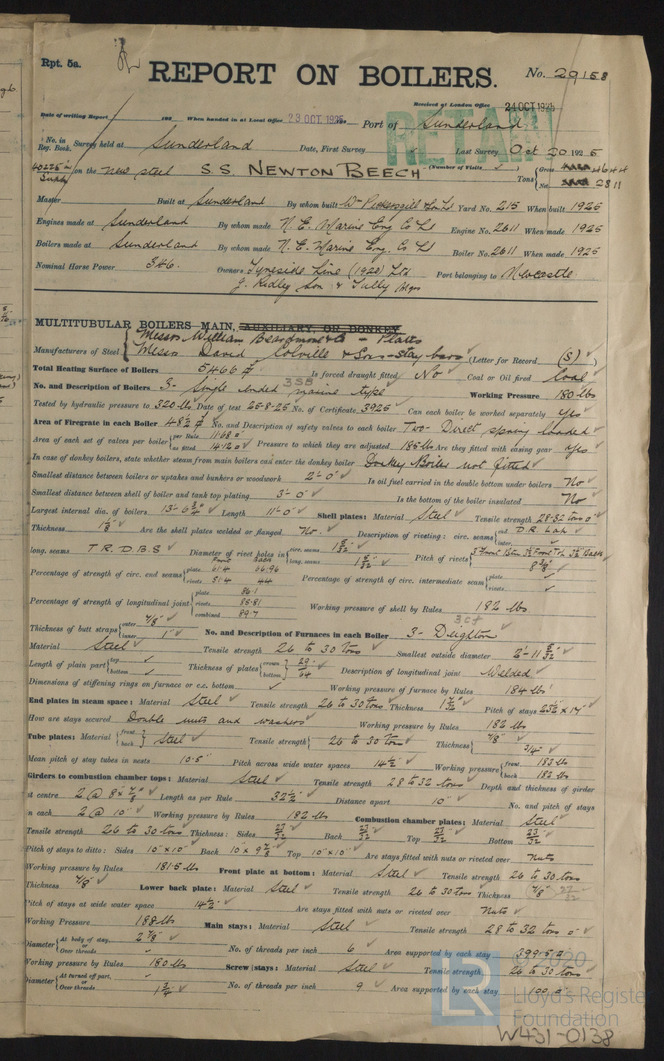 Rpt. 5a.
REPORT ON BOILERS.
No. 29158
Received at London Office 24 OCT 1925
Date of writing Report 192 When handed in at Local Office 23 OCT. 1925 Port of Sunderland
RETAIN
No. in Reg. Book. Survey held at Sunderland Date, First Survey Last Survey Oct 20 1925
on the New steel S.S. NEWTON BEECH (Number of Visits ) Tons { Gross 4644 Net 2811
Master Built at Sunderland By whom built Wm Pickersgill & Sons Ld Yard No. 215 When built 1925
Engines made at Sunderland By whom made N. E. Marine Eng. Co Ld Engine No. 2611 When made 1925
Boilers made at Sunderland By whom made N. E. Marine Eng. Co Ld Boiler No. 2611 When made 1925
Nominal Horse Power 346. Owners Tyneside Line (1923) Ltd Port belonging to Newcastle
J. Ridley Son & Tully Mgrs
MULTITUBULAR BOILERS MAIN, AUXILIARY, OR DONKEY
Manufacturers of Steel { Messrs William Beardmore & Co - Plates
Messrs David Colville & Sons - Stay bars (Letter for Record (S) )
Total Heating Surface of Boilers 5466 Is forced draught fitted No Coal or Oil fired Coal
No. and Description of Boilers 3 - Single ended marine type 3SB Working Pressure 180 lbs
Tested by hydraulic pressure to 320 lbs Date of test 26-8-25 No. of Certificate 3926 Can each boiler be worked separately Yes
Area of Firegrate in each Boiler 48½ No. and Description of safety valves to each boiler Two - Direct spring loaded
Area of each set of valves per boiler { per Rule 11.68 as fitted 14.12 Pressure to which they are adjusted 185 lbs Are they fitted with easing gear Yes
In case of donkey boilers, state whether steam from main boilers can enter the donkey boiler Donkey Boiler not fitted
Smallest distance between boilers or uptakes and bunkers or woodwork 2'-0" Is oil fuel carried in the double bottom under boilers No
Smallest distance between shell of boiler and tank top plating 3'-0" Is the bottom of the boiler insulated No
Largest internal dia. of boilers Length 11'-0" Shell plates: Material Steel Tensile strength 28-32 tons
Thickness Are the shell plates welded or flanged No. Description of riveting: circ. seams { end D.R. Lap inter.
long. seams T.R.D.B.S Diameter of rivet holes in { circ. seams long. seams Pitch of rivets
Percentage of strength of circ. end seams { plate 61.4 66.96 rivets 51.4 44 Percentage of strength of circ. intermediate seam { plate rivets
Percentage of strength of longitudinal joint { plate 86.1 rivets 88.81 combined 89.7 Working pressure of shell by Rules 182 lbs
Thickness of butt straps { outer 7/8" inner 1" No. and Description of Furnaces in each Boiler 3 - Deighton
Material Steel Tensile strength 26 to 30 tons Smallest outside diameter
Length of plain part { top bottom Thickness of plates { crown bottom 29/64 Description of longitudinal joint Welded
Dimensions of stiffening rings on furnace or c.c. bottom Working pressure of furnace by Rules 184 lbs
End plates in steam space: Material Steel Tensile strength 26 to 30 tons Thickness 1 3/32" Pitch of stays
How are stays secured Double nuts and washers Working pressure by Rules 182 lbs
Tube plates: Material { front back Steel Tensile strength { 26 to 30 tons Thickness { 7/8" 3/4"
Mean pitch of stay tubes in nests 10.5" Pitch across wide water spaces 14½" Working pressure { front 183 lbs back 182 lbs
Girders to combustion chamber tops: Material Steel Tensile strength 28 to 32 tons Depth and thickness of girder
at centre 2 @ 8 x 7/8 Length as per Rule 32½ Distance apart 10" No. and pitch of stays
in each 2 @ 10" Working pressure by Rules 182 lbs Combustion chamber plates: Material Steel
Tensile strength 26 to 30 tons Thickness: Sides 23/32 Back 23/32 Top 23/32 Bottom 23/32
Pitch of stays to ditto: Sides 10" x 10" Back Top 10" x 10" Are stays fitted with nuts or riveted over Nuts
Working pressure by Rules 181.5 lbs Front plate at bottom: Material Steel Tensile strength 26 to 30 tons
Thickness 7/8" Lower back plate: Material Steel Tensile strength 26 to 30 tons Thickness 7/8"
Pitch of stays at wide water space 14½" Are stays fitted with nuts or riveted over Nuts
Working Pressure 188 lbs Main stays: Material Steel Tensile strength 28 to 32 tons
Diameter { At body of stay, or Over threads 2 7/8" No. of threads per inch 6 Area supported by each stay 399.5
Working pressure by Rules 180 lbs Screw stays: Material Steel Tensile strength 26 to 30 tons
Diameter { At turned off part, or Over threads 1 3/4" No. of threads per inch 9 Area supported by each stay 100
© 2020
LR Lloyd's Register
Foundation
W431-0138